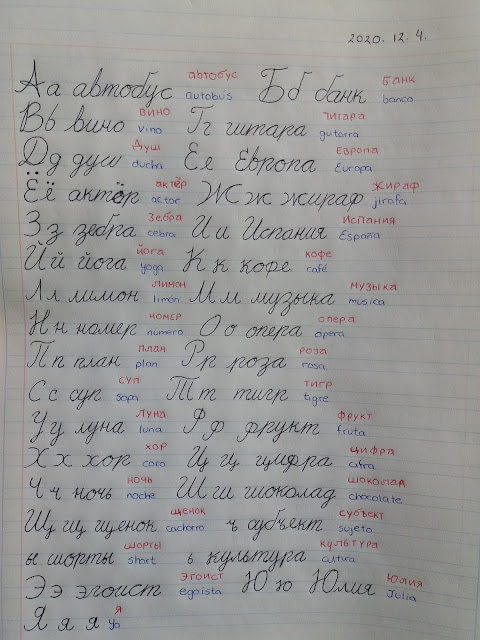 2020. 12. 4.
Аа автобус автобус autobús Бб банк банк banco
Вв вино вино vino Гг гитара гитара guitarra
Дд душ душ ducha Ее Европа Европа Europa
Ёё актёр актёр actor Жж жираф жираф jirafa
Зз зебра зебра cebra Ии Испания Испания España
Йй йога йога yoga Кк кофе кофе café
Лл лимон лимон limón Мм музыка музыка música
Нн номер номер número Оо опера опера opera
Пп план план plan Рр роза роза rosa
Сс суп суп sopa Тт тигр тигр tigre
Уу луна луна luna Фф фрукт фрукт fruta
Хх хор хор coro Цц цифра цифра cifra
Чч ночь ночь noche Шш шоколад шоколад chocolate
Щщ щенок щенок cachorro ъ субъект субъект sujeto
ы шорты шорты short ь культура культура cultura
Ээ эгоист эгоист egoísta Юю Юлия Юлия Julia
Я я я я yo